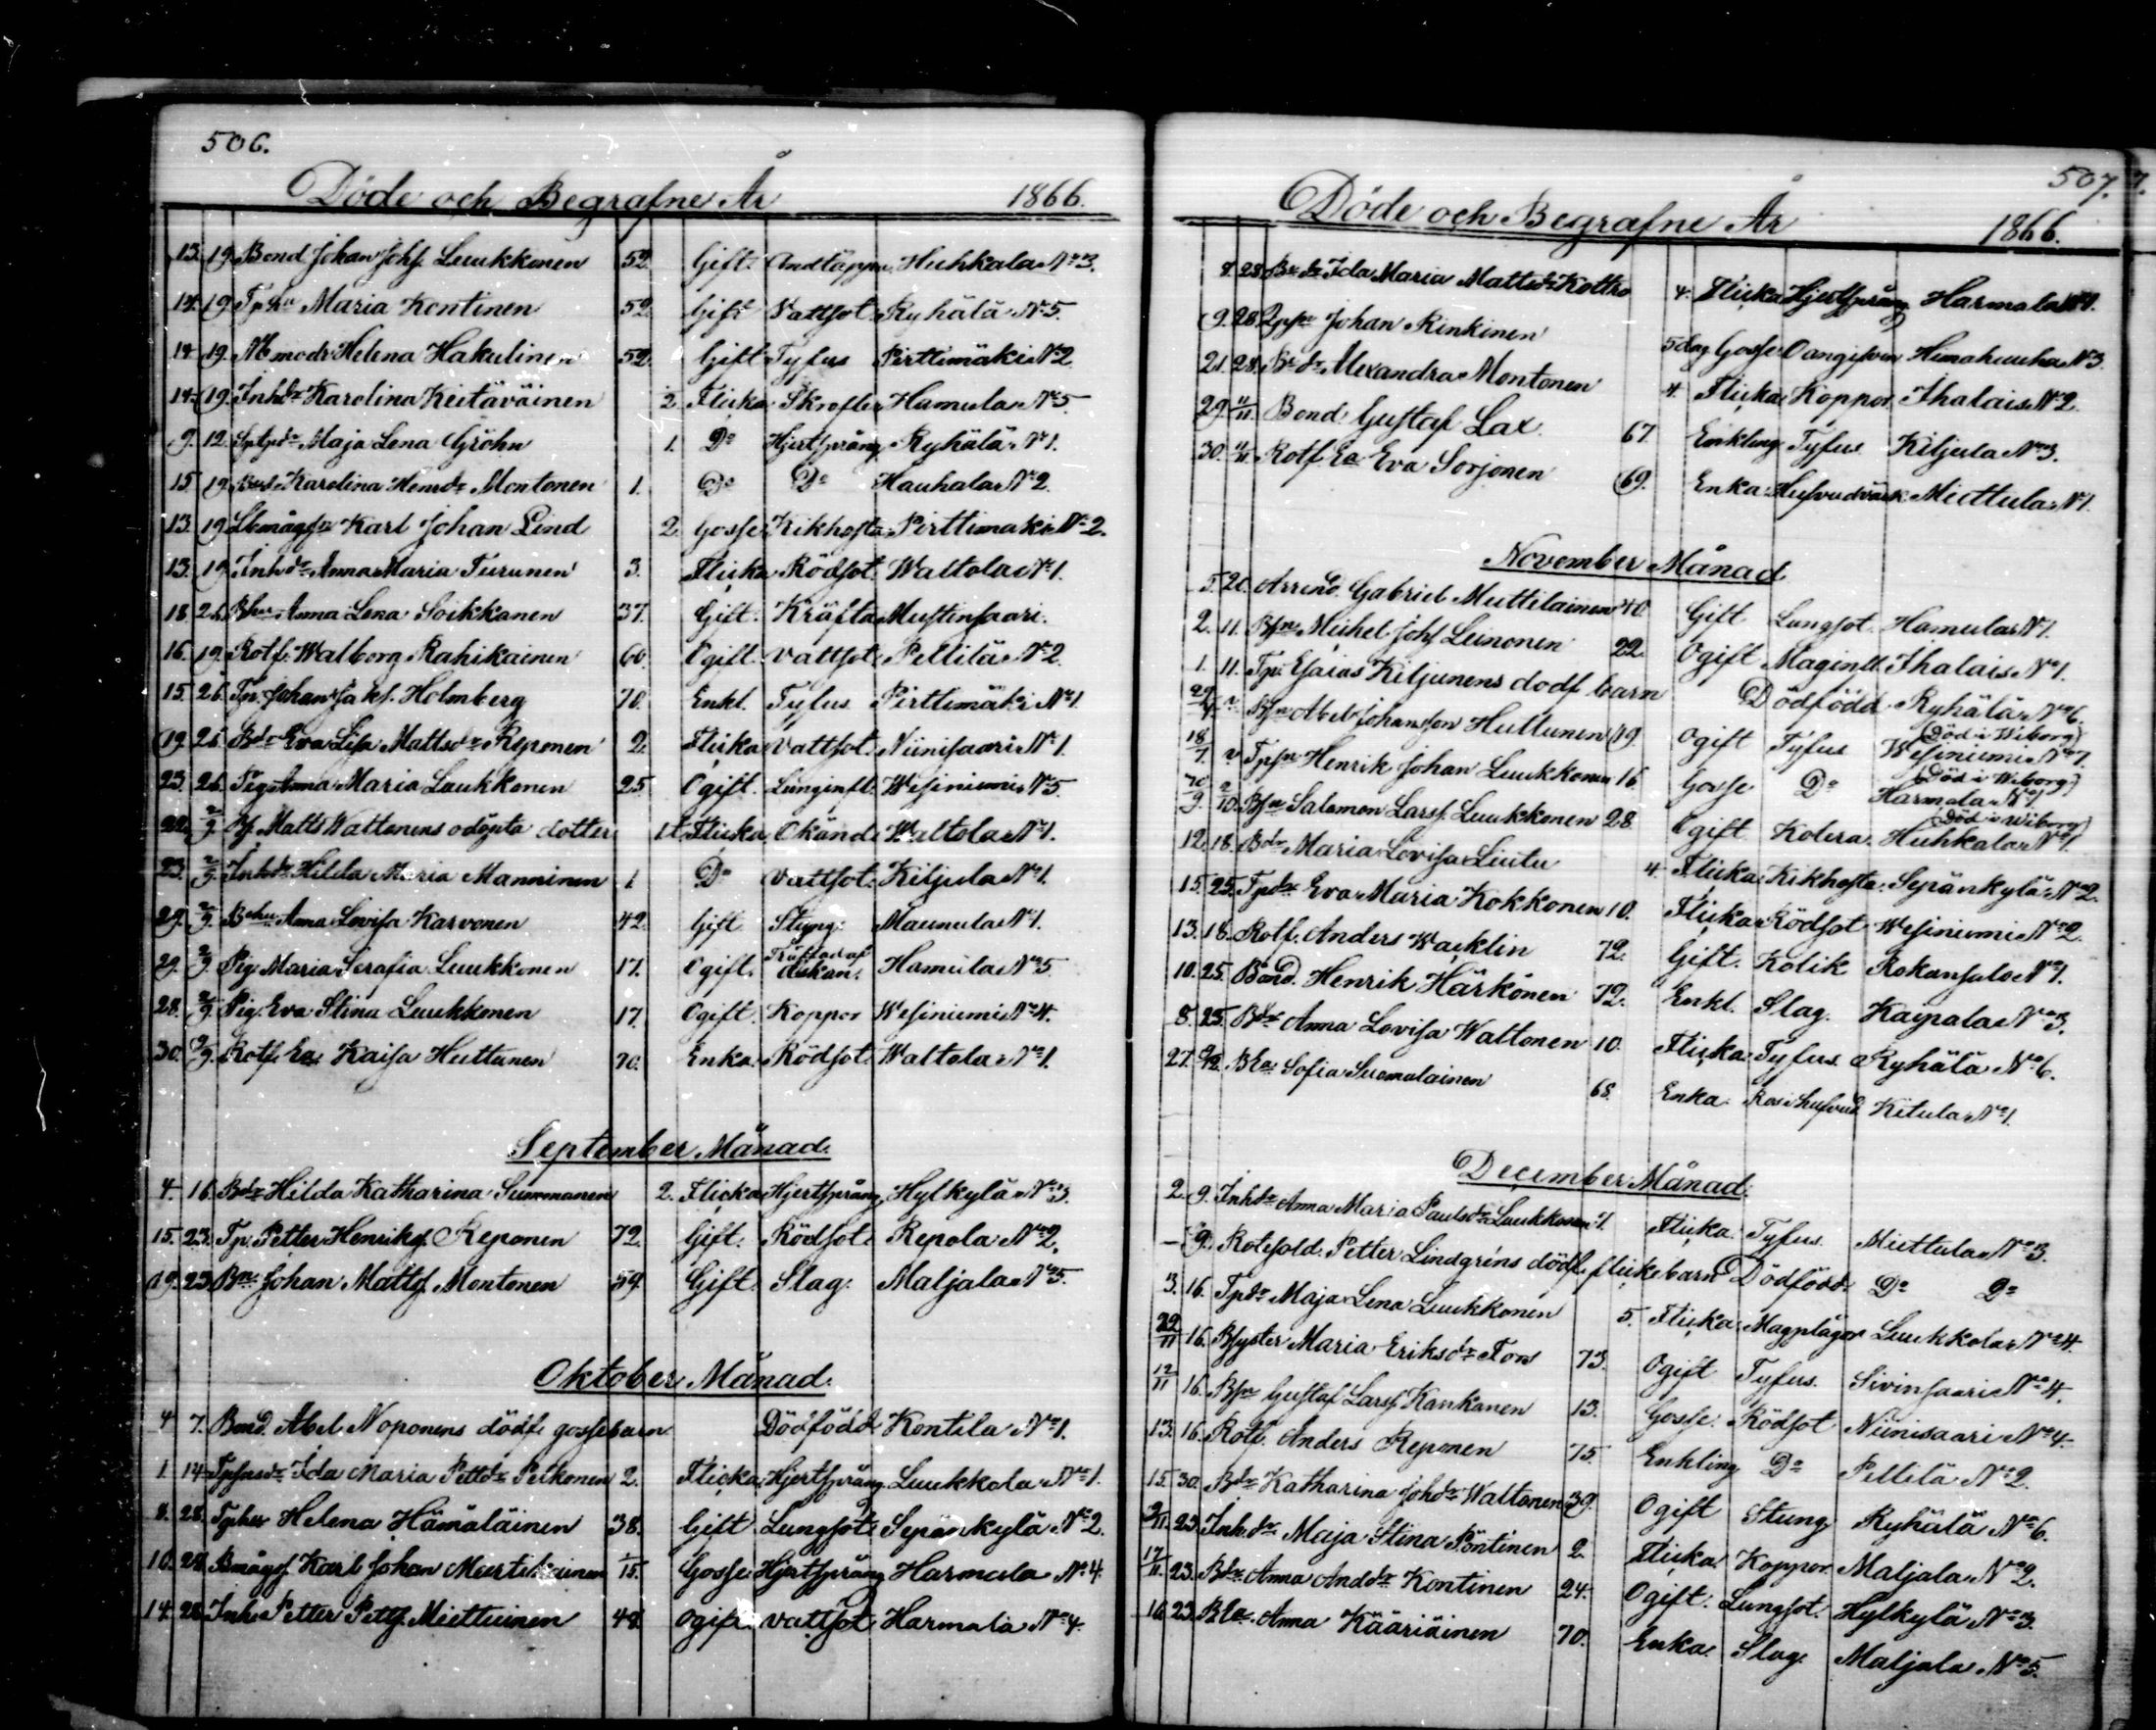 506.
Döde och Begrafne År 1866.
13. 19. Bond Johan Johs. Luukkonen 52. Gift. Andtäppa Huhkala No 3.
14. 19. Tphu Maria Kontinen 52. Gift Vattsot. Ryhälä No 5.
14. 19. Mmodr Helena Hakulinen 52. Gift Tyfus Pirttimäki No 2.
14. 19. Inhdr Karolina Keitäväinen 2. Flicka Skrofler Hamula No 5.
9. 12. Maja Lena Gröhn 1. Do Hjertsprång Ryhälä No 1.
15. 19. Karolina Henrdr Montonen 1. Do Do Hauhala No 2.
13. 19. Karl Johan Lind 2. Gosse Kikhosta Pirttimäki No 2.
13. 19. Inhdr Anna Maria Turunen 3. Flicka Rödsot. Waltola No 1.
18. 26. Bhu Anna Lena Soikkanen 37. Gift. Kräfta Mustinsaari.
16. 19. Rotf. Walborg Rahikainen 60. Ogift. Vattsot. Pellilä No 2.
15. 26. Tp. Johan Jaks. Holmberg 70. Enkl. Tyfus Pirttimäki No 1.
19. 26. Bdr Eva Lisa Mattsdr Reponen 2. Flicka Vattsot. Niinisaari No 1.
23. 26. Pig. Anna Maria Laukkonen 25. Ogift. Lunginfl. Wesiniemi No 5.
22. 2/9. Matts Waltonens odöpta dotter Flicka Okänd Waltola No 1.
23. 2/9. Inhdr Hilda Maria Manninen 1. Do Vattsot. Kiljula No 1.
29. 2/9. Bhu Anna Lovisa Karvonen 42. Gift Styng. Maunula No 1.
29. 2/9. Pig. Maria Serafia Luukkonen 17. Ogift. Träffad af åskan. Hamula No 5.
28. 2/9. Pig. Eva Stina Luukkonen 17. Ogift. Koppor Wesiniemi No 4.
30. 2/9. Rotf. Ea Kaisa Huttunen 70. Enka. Rödsot. Waltola No 1.
September Månad.
4. 16. Bdr Hilda Katharina Summanen 2. Flicka Hjertsprång Hylkylä No 3.
15. 23. Tp. Petter Henriks. Reponen 72. Gift. Rödsot. Repola No 2.
19. 23. Johan Matts. Montonen 59. Gift. Slag. Maljala No 5.
Oktober Månad.
4. 7. Bond. Abel Noponens dödf. gossebarn Dödfödd. Kontila No 1.
1. 14. Ida Maria Pettdr Peikonen 2. Flicka Hjertsprång Luukkola No 1.
8. 28. Tphu Helena Hämäläinen 38. Gift Lungsot. Sepänkylä No 2.
10. 28. Bmågs. Karl Johan Martikainen 1/15. Gosse Hjertsprång Harmala No 4.
14. 28. Inh. Petter Petts. Miettuinen 48. Ogift. Vattsot. Harmala No 4.
507.
Döde och Begrafne År 1866.
8. 28. Bdr Ida Maria Mattsdr Kotro 4. Flicka Hjertsprång Harmala No 1.
9. 28. Tpsn Johan Rinkinen 5 dag Gosse Oangifven Himahuuha No 3.
21. 28. Bdr Alexandra Montonen 4. Flicka Koppor Ihalais No 2.
29. 4/11. Bond. Gustaf Lax. 67. Enkling Tyfus. Kiljula No 3.
30. 4/11. Rotf. Ea Eva Sorjonen 69. Enka. Hufvudvärk Miettula No 1.
November Månad
5. 20. Arrend. Gabriel Muttilainen 40. Gift Lungsot. Hamula No 1.
2. 11. Bsn Mickel Johs. Leinonen 22. Ogift Maginfl. Ihalais No 1.
1. 11. Tp. Esaias Kiljunens dödf. barn Dödfödd. Ryhälä No 6.
29/4 ? Bsn Abel Johansson Huttunen 19. Ogift Tyfus (Död i Wiborg) Wesiniemi No 7.
18/7 ? Tpsn Henrik Johan Luukkonen 16. Gosse Do (Död i Wiborg) Harmala No 1.
Bsn Salomon Larss. Luukkonen 28. Ogift Kolera. (Död i Wiborg) Huhkala No 1.
12. 18. Bdr Maria Lovisa Liutu 4. Flicka Kikhosta. Sepänkylä No 2.
15. 25. Tpdr Eva Maria Kokkonen 10. Flicka Rödsot Wesiniemi No 2.
13. 18. Rotf. Anders Wacklin 72. Gift. Kolik Rokansalo No 1.
10. 25. Bond. Henrik Härkönen 72. Enkl. Slag. Kaipala No 3.
8. 25. Bdr Anna Lovisa Waltonen 10. Flicka Tyfus. Ryhälä No 6.
27. Bea Sofia Suomalainen 68. Enka. Ros i hufvud. Kitula No 1.
December Månad.
2. 9. Inhdr Anna Maria Paulsdr Luukkonen 1. Flicka. Tyfus. Miettula No 3.
— 9. Rotesold. Petter Lindgréns dödf. flickebarn Dödfödd. Do Do
3. 16. Tpdr Maja Lena Luukkonen 5. Flicka. Magplågor Luukkola No 4.
22/11 16. Bsyster Maria Eriksdr Tors 73. Ogift Tyfus. Sivinsaari No 4.
12/11 16. Bsn Gustaf Larss. Kankanen 13. Gosse. Rödsot Niinisaari No 4.
13. 16. Rotf. Anders Reponen 75. Enkling Do Pellilä No 2.
15. 30. Bdr Katharina Johdr Waltonen 39. Ogift Stung. Ryhälä No 6.
23. Inhdr Maja Stina Pöntinen 2. Flicka Koppor. Maljala No 2.
17/11. 23. Bdr Anna Anddr Kontinen 24. Ogift. Lungsot. Hylkylä No 3.
16. 23. Bea Anna Kääriäinen 70. Enka. Slag. Maljala No 5.